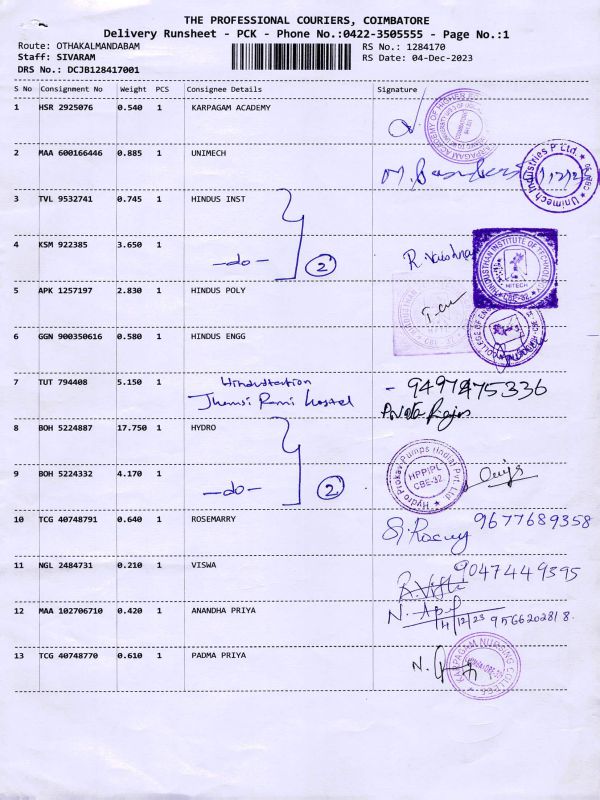 THE PROFESSIONAL COURIERS, COIMBATORE
Delivery Runsheet - PCK - Phone No.:0422-3505555 - Page No.:1
Route: OTHAKALMANDABAM RS No.: 1284170
Staff: SIVARAM RS Date: 04-Dec-2023
DRS No.: DCJB128417001
S No Consignment No Weight PCS Consignee Details Signature
1 HSR 2925076 0.540 1 KARPAGAM ACADEMY
2 MAA 600166446 0.885 1 UNIMECH
Unimech Industries P Ltd.
3 TVL 9532741 0.745 1 HINDUS INST
4 KSM 922385 3.650 1 -do- 2 R. Vaishnav
HINDUSTHAN INSTITUTE OF
HITECH
CBE-32
5 APK 1257197 2.830 1 HINDUS POLY
6 GGN 900350616 0.580 1 HINDUS ENGG
COLLEGE OF
7 TUT 794408 5.150 1 Hindusthan
Jhansi Rani hostel
8 BOH 5224887 17.750 1 HYDRO
9 BOH 5224332 4.170 1 -do- 2
Hydro Prokav Pumps (India) Pvt. Ltd.
HPPIPL
CBE-32
10 TCG 40748791 0.640 1 ROSEMARRY 9677689358
11 NGL 2484731 0.210 1 VISWA 9047449395
12 MAA 102706710 0.420 1 ANANDHA PRIYA
4/12/23 9566202818.
13 TCG 40748770 0.610 1 PADMA PRIYA N.
KARPAGAM NURSING COLLEGE